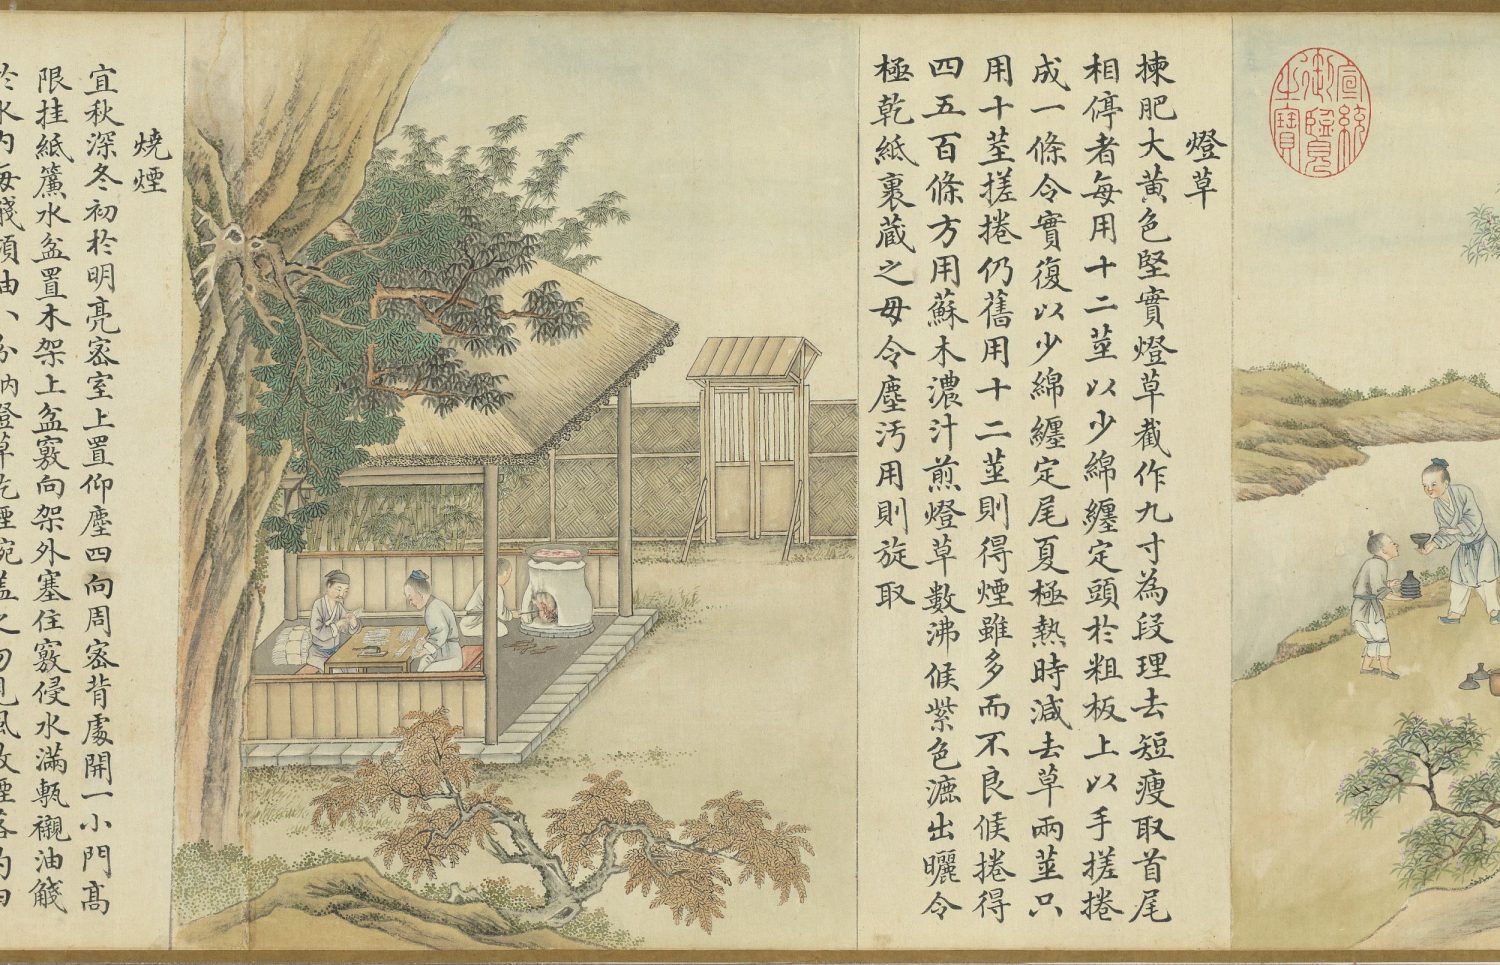 宣統御覽之寶
燈草
揀肥大黃色堅實燈草截作九寸為段理去短瘦取首尾
相停者每用十二莖以少綿纏定頭於粗板上以手搓捲
成一條令實復以少綿纏定尾夏極熱時減去草兩莖只
用十莖搓捲仍舊用十二莖則得煙雖多而不良候捲得
四五百條方用蘇木濃汁煎燈草數沸候紫色漉出曬令
極乾紙裹蔵之毋令塵汚用則旋取
燒煙
宜秋深冬初於明亮密室上置仰塵四向周密背處開一小門高
限挂紙簾水盆置木架上盆竅向架外塞住竅侵水滿甎襯油
於水內每